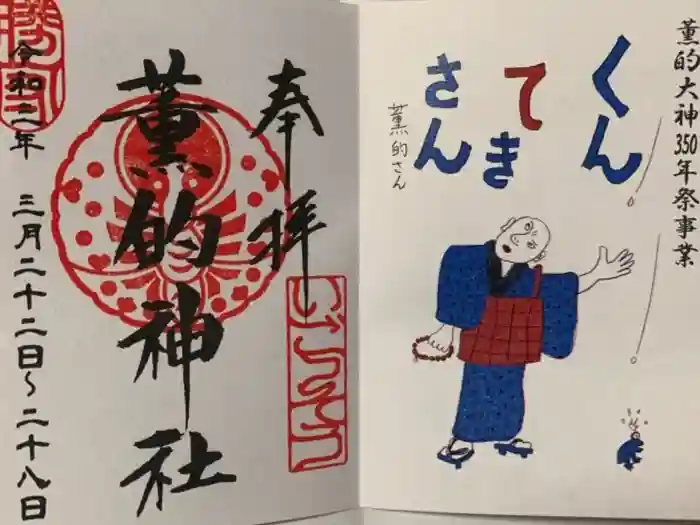 薫的大神350年祭事業
くん
てき
さん
薫的さん
奉拝
薫的神社
令和二年 三月二十二日～二十八日